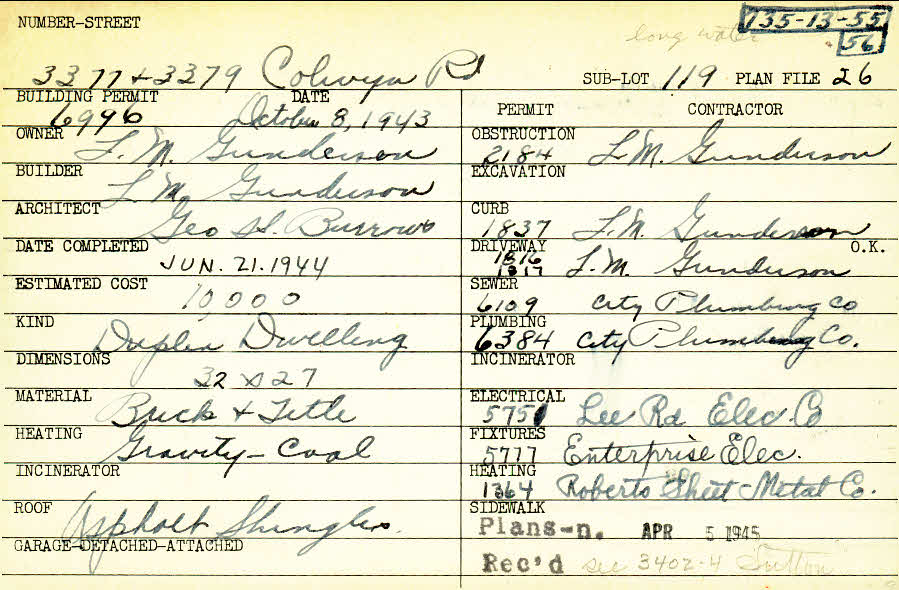 NUMBER-STREET
735-13-55
56
long water
3377 & 3379 Colwyn Rd
SUB-LOT 119 PLAN FILE 26
BUILDING PERMIT DATE
6996 October 8, 1943
OWNER
L. M. Gunderson
BUILDER
L M Gunderson
ARCHITECT
Geo H. Burrows
DATE COMPLETED
JUN. 21. 1944
ESTIMATED COST
10,000
KIND
Duplex Dwelling
DIMENSIONS
32 x 27
MATERIAL
Brick & Title
HEATING
Gravity - Coal
INCINERATOR
ROOF
Asphalt Shingles
GARAGE-DETACHED-ATTACHED
PERMIT CONTRACTOR
OBSTRUCTION
2184 L.M. Gunderson
EXCAVATION
CURB
1837 L.M. Gunderson
DRIVEWAY O.K.
1816
1817 L.M. Gunderson
SEWER
6109 City Plumbing Co
PLUMBING
6384 City Plumbing Co.
INCINERATOR
ELECTRICAL
5751 Lee Rd Elec. Co
FIXTURES
5777 Enterprise Elec.
HEATING
1364 Roberts Sheet Metal Co.
SIDEWALK
Plans-n. APR 5 1945
Rec'd see 3402-4 Sutton